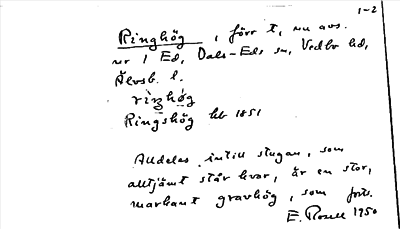 1-2
Ringhög, förr t, nu avs.
nr 1 Ed, Dals-Eds sn, Vedbo hd,
Älvsb. l.
rìnhø̀g
Ringshög hb 1851
Alldeles intill stugan, som
alltjämt står kvar, är en stor,
markant gravhög, som forts.
E. Rosell 1950